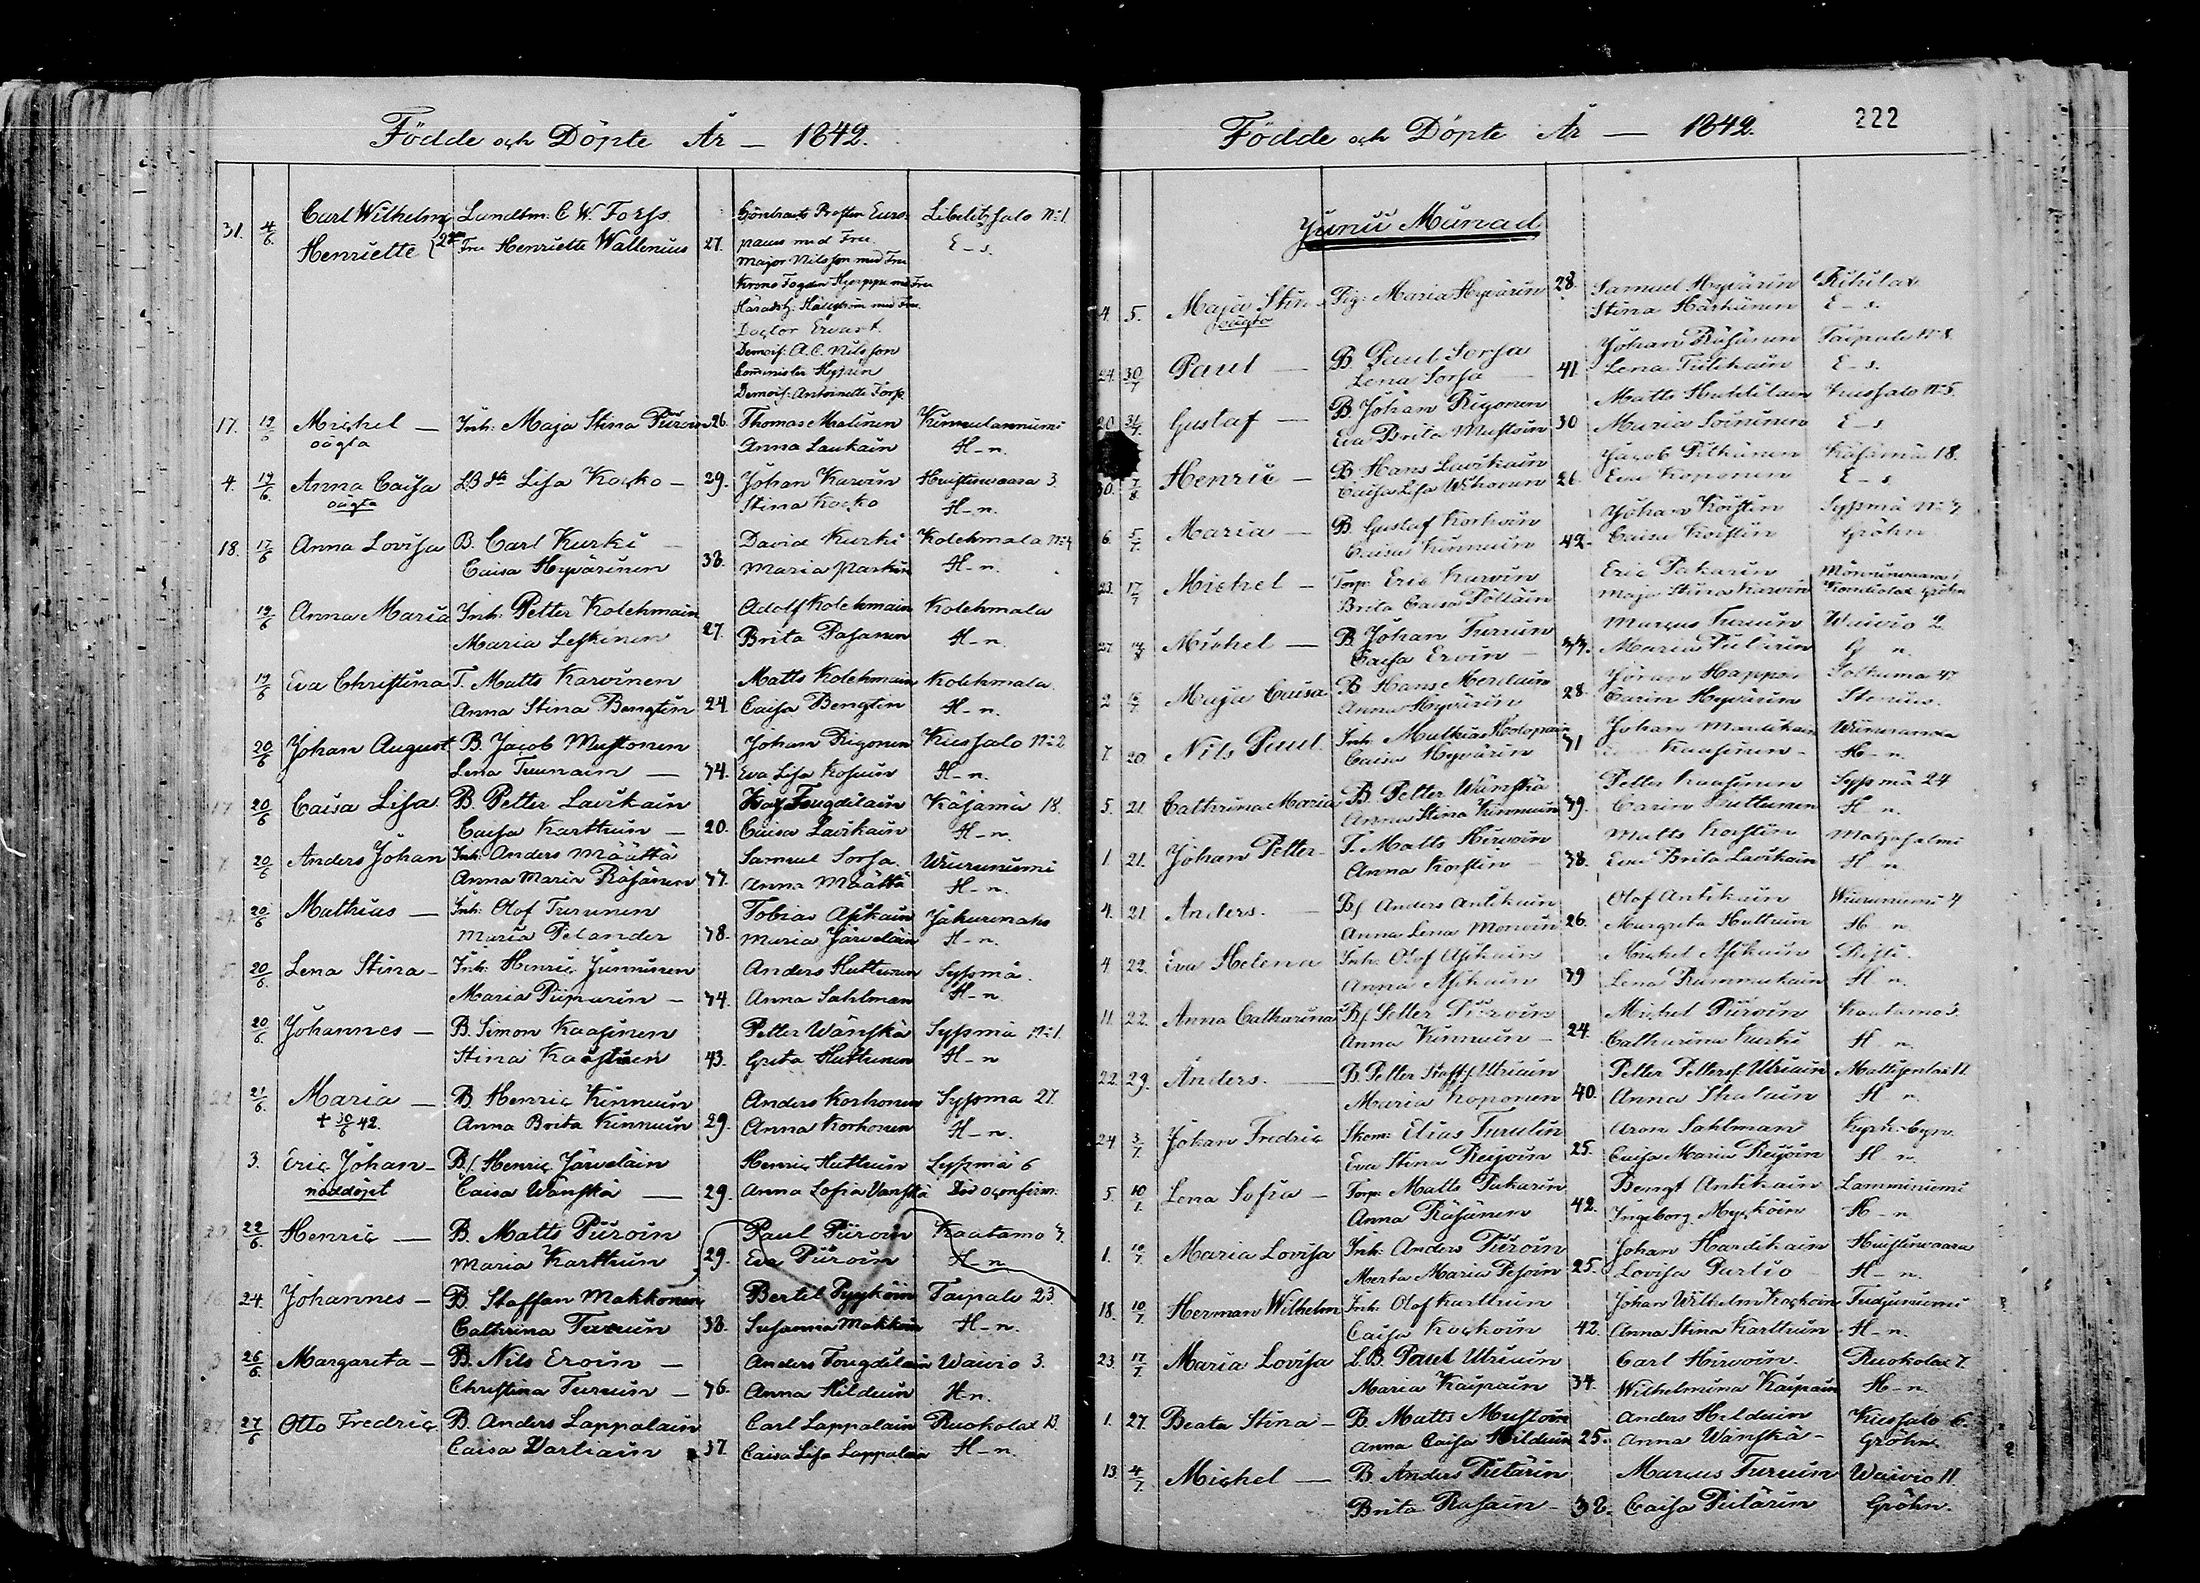 Födde och Döpte År — 1842.
31. 4/6. Carl Wilhelm Landtm: C. W. Forss. Contracts Prosten Euro- Libelitzsalo N:1
Henriette Fru Henriette Wallenius 27. paeus med Fru E – s.
Major Nilsson med Fru
Krono Fogden med Fru
Häradsh: med Fru
Doctor
Demois: A. C. Nilsson
Comminister
Demois: Antoinette Forss
17. 19/6 Michel — Inh: Maja Stina Piiroin 26. Thomas Malinen Kinnulanniemi
oägta Anna Laukain H – n.
4. 19/6. Anna Caisa Lisa Kocko – 29. Johan Karvin Huistinvaara 3.
oägta Stina Kocko H – n.
18. 17/6 Anna Lovisa B. Carl Kurki — David Kurki Kolehmala N:4
Caisa Hyvärinen 38. Maria H – n.
19/6 Anna Maria Inh: Petter Kolehmain Adolf Kolehmain Kolehmala
Maria Leskinen 27. Brita Pasanen H – n.
19/6 Eva Christina T. Matts Karvinen Matts Kolehmain Kolehmala
Anna Stina Bengtin 24. Caisa Bengtin H – n.
20/6 Johan August B. Jacob Mustonen Johan Rigonen Kussalo N:2
Lena Turunain — 44. Eva Lisa Kosuin H – n.
17 20/6 Caisa Lisa B. Petter Lavikain Fougdilain Käsämä 18.
Caisa Karttuin — 20. Caisa Lavikain H – n.
20/6 Anders Johan Inh: Anders Määttä Samuel Sorsa. Wiuruniemi
Anna Maria Räsänen 47. Anna Määttä H – n.
20/6 Mathias — Inh: Olof Turunen Tobias Asikain
Maria Pelander 48. Maria Järveläin H – n.
20/6. Lena Stina – Inh: Henric Junninen Anders Huttunen Syssmä.
Maria Piiparin — 44. Anna Sahlman H – n.
20/6. Johannes – B. Simon Kaasinen Petter Wänskä Syssmä N:1
Stina 43. Greta Huttunen H – n
21/6. Maria — B. Henric Kinnuin Anders Korhonen Sysmä 27.
+ 30/6 42. Anna Brita Kinnuin 29. Anna Korhonen H – n.
3. Eric Johan – B/. Henric Järveläin Henric Huttuin Syssmä 6
nöddöpt Caisa Wänskä — 29. Anna Sofia Vanskä
22/6. Henric — B. Matts Piiroin Paul Piiroin Kaatamo
Maria Karttuin 29. Eva Piiroin H – n
24. Johannes – B. Staffan Makkonen Bertil Pyykköin Taipale 23.
Cathrina Turuin 38. Susanna Makkoin H – n.
26/6. Margareta – B. Nils Eroin — Anders Fougdilain Waivio 3.
Christina Turuin – 46. Anna Hilduin H – n.
27 27/6 Otto Fredric B. Anders Lappalain Carl Lappalain Ruokolax 13.
Caisa Vartiain 37. Caisa Lisa Lappalain H – n.
Födde och Döpte År — 1842. 222
Junii Månad
4. 5. Maja Stin Pig: Maria Hyvärin 28. Samuel Hyvärin Rikilax
oägta Stina Härkünen E – s.
24. 30/7 Paul — B. Paul Sorsa Johan Räsänen Taipale N:8.
Lena Sorsa 41. Lena Tulikain E – s.
20 31/7. Gustaf — B. Johan Rigonen Matts Huttilain Kussalo N:5.
Eva Brita Mustoin 30 Maria Soininen E – s
30. 7/8 Henric — B. Hans Lavikain Jacob Pitkänen Käsämä 18.
Caisa Lisa 26. Eva Koponen E – s
6. 5/7. Maria — B. Gustaf Korhoin Johan Koistin Syssmä N:
Caisa Kinnuin 42. Caisa Koistin Gröhn
23. 17/7 Michel – Torp: Eric Karvin Eric Pakarin
Brita Caisa Pölläin Maja Stina Karvin Kondiolax Gröhn
27. Michel — B. Johan Turuin Marcus Turuin Waivio 2.
Caisa Eroin – 44. Maria Piitärin G n.
2 Maja Caisa B. Hans Merilain Jöran Happoi
Anna Hyvärin 28. Carin Hyvärin Stenius.
7. 20. Nils Paul. Inh: Mathias Caisa Hyvärin 41 Johan Martikain
Kaasinen – H – n.
5. 21. Cathrina Maria B. Petter Wänskä Petter Kaasinen Syssmä 24
Anna Stina Kinnuin 49. Carin Huttunen H n.
1. 21. Johan Petter T. Matts Hirvoin Matts Koistin
Anna Koistin – 38. Eva Brita Lavikain H – n.
4. 21. Anders. — B/ Anders Antikain Olof Antikain Wiuruniemi 4
Anna Lena 26. Margreta Huttuin H – n.
4 22. Eva Helena Inh: Olof Asikain Michel Asikain Risti.
Anna Asikain 39 Lena Rummukain H n.
11. 22. Anna Catharina B/. Petter Piiroin Michel Piiroin Kaatamo 3.
Anna Kinnuin – 24. Catharina Kurki H n.
22. 29. Anders. — B. Petter Staffs. Utriain Petter Petters. Utriain
Maria Koponen 40. Anna H n.
24 3/7. Johan Fredric Skom: Elias Turulin Aron Sahlman Kyrk-byn.
Eva Stina 25. Caisa Maria H n.
5. 10/7. Lena Sofia – Torp: Matts Pakarin Bengt Antikain Lamminiemi
Anna Räsänen 42. Ingeborg H – n
1. 10/7. Maria Lovisa Inh: Anders Piiroin Johan Hardikain Huistinvaara
Maria 25. Lovisa Partio H – n.
18. 10/7. Herman Wilhelm Inh: Olof Karttuin Johan Wilhelm Kockoin
Caisa Kockoin 42. Anna Stina Karttuin H – n.
23. 17/7. Maria Lovisa L. B. Paul Utriain Carl Hirvoin. Ruokolax 7.
Maria Kaipain 34. Wilhelmina Kaipain H – n.
1. 27. Beata Stina – B. Matts Mustoin Anders Hilduin Kussalo 6.
Anna Caisa Hilduin 25. Anna Wänskä – Gröhn.
13. 4/7. Michel — B. Anders Piitärin Marcus Turuin Waivio 11.
Brita Rasain – 32. Caisa Piitärin Gröhn.